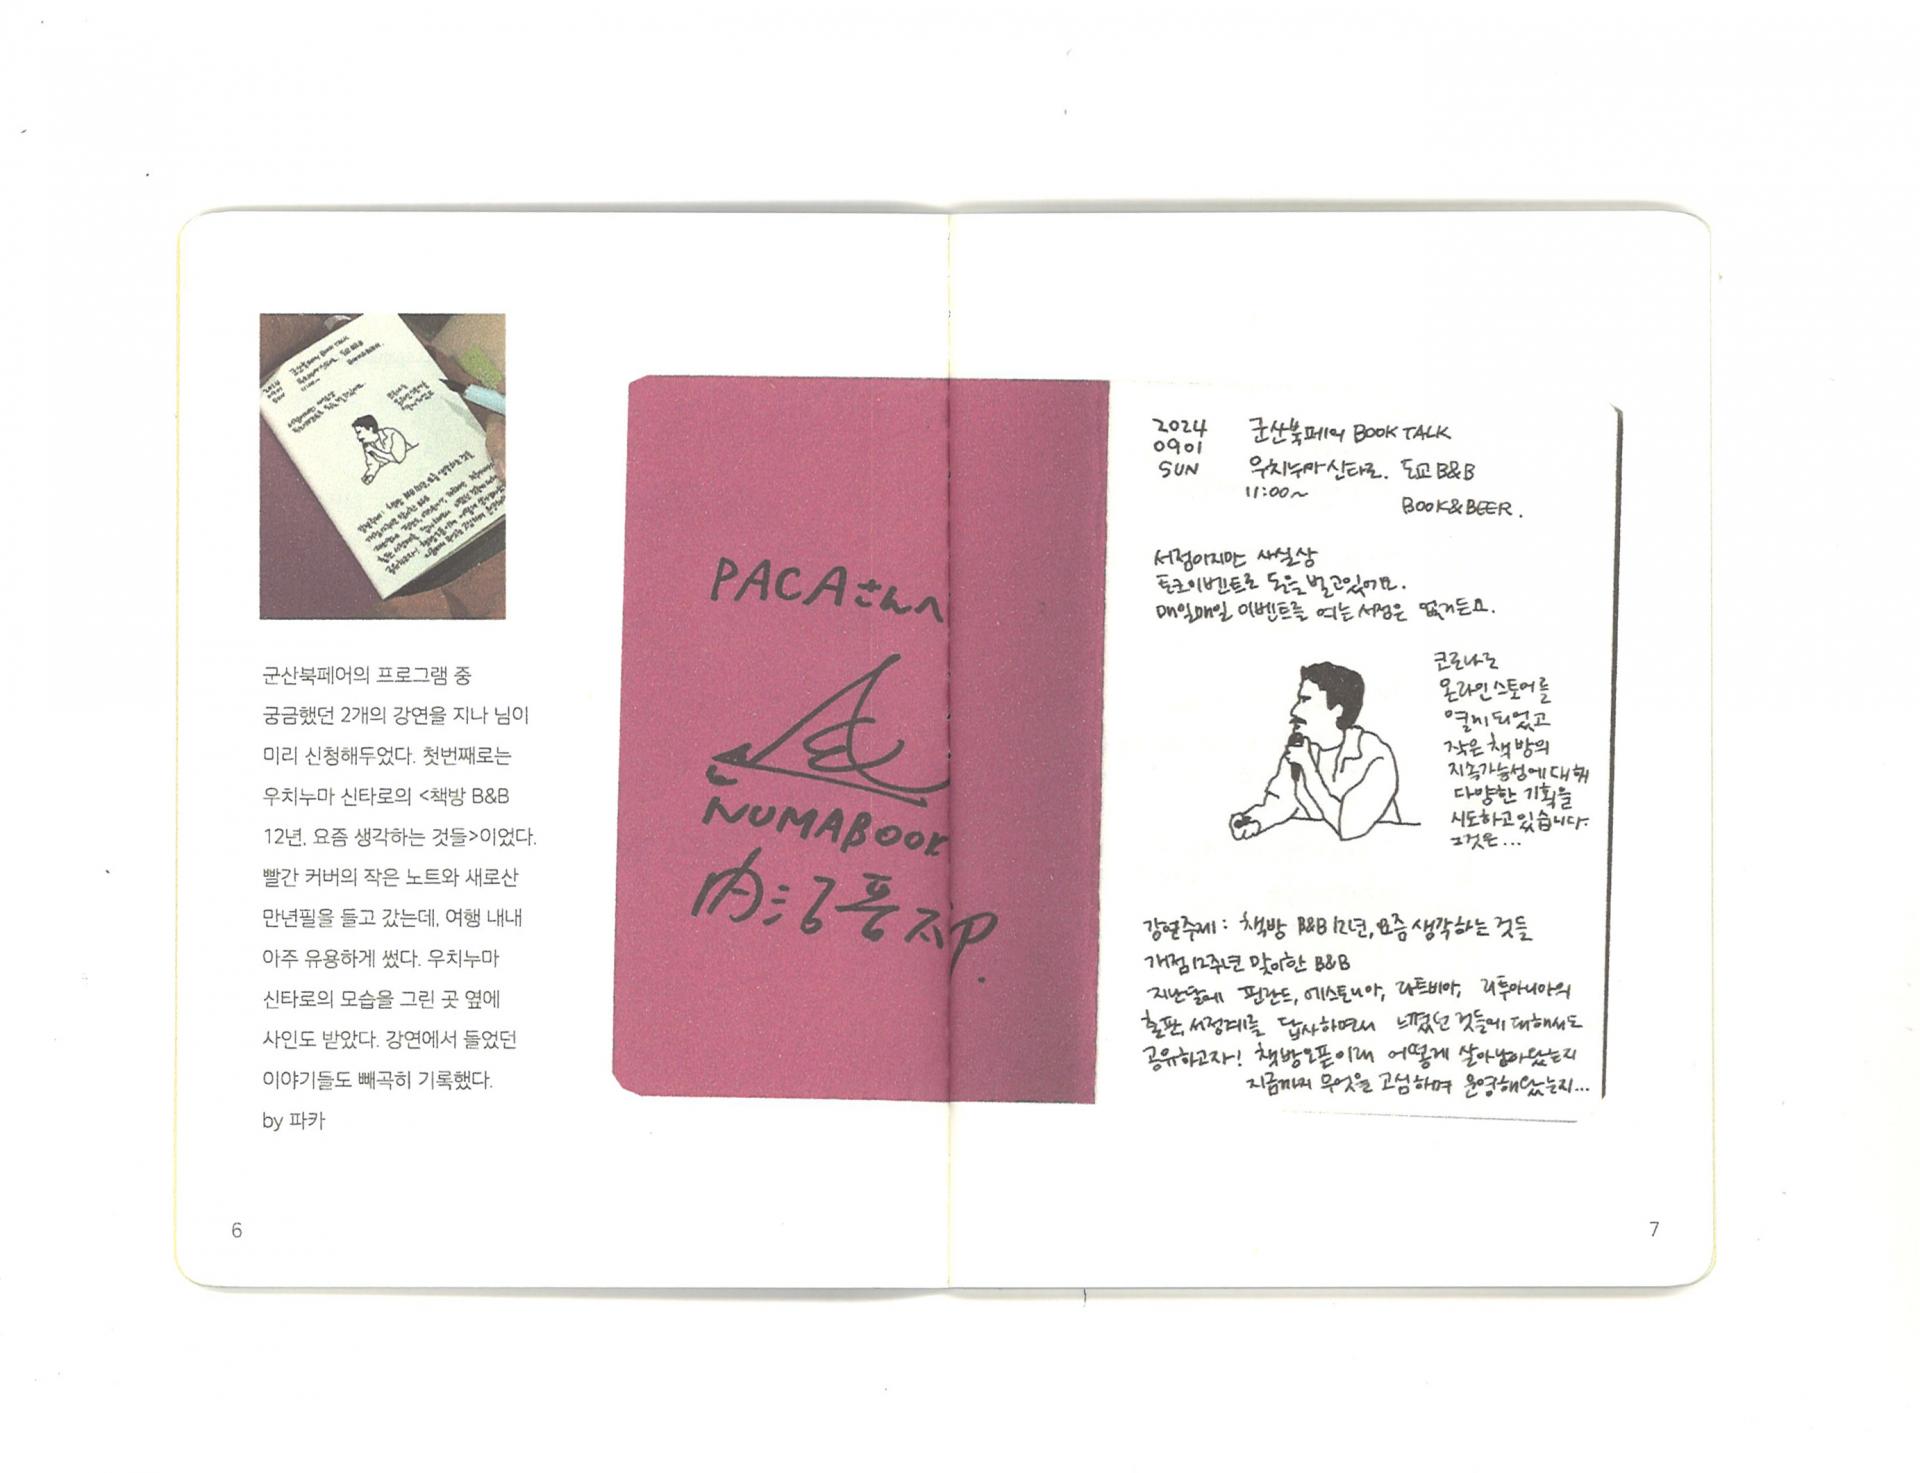 군산북페어의 프로그램 중
궁금했던 2개의 강연을 지나 님이
미리 신청해두었다. 첫번째로는
우치누마 신타로의 <책방 B&B
12년, 요즘 생각하는 것들>이었다.
빨간 커버의 작은 노트와 새로산
만년필을 들고 갔는데, 여행 내내
아주 유용하게 썼다. 우치누마
신타로의 모습을 그린 곳 옆에
사인도 받았다. 강연에서 들었던
이야기들도 빼곡히 기록했다.
by 파카
6
PACAさんへ
NUMABOOK
内沼晋太郎.
2024
0901
SUN
군산북페어 BOOK TALK
우치누마 신타로. 도쿄 B&B
11:00~
BOOK&BEER.
서점이지만 사실상
토크이벤트로 돈을 벌고있어요.
매일매일 이벤트를 여는 서점은 없거든요.
코로나로
온라인스토어를
열게되었고
작은 책방의
지속가능성에 대해
다양한 기획을
시도하고있습니다.
그것은...
강연주제: 책방 B&B 12년, 요즘 생각하는 것들
개점12주년 맞이한 B&B
지난달에 핀란드, 에스토니아, 라트비아, 리투아니아의
출판, 서점계를 답사하면서 느꼈던 것들에 대해서도
공유하고자! 책방오픈이래 어떻게 살아남아왔는지
지금까지 무엇을 고심하며 운영해왔는지...
7